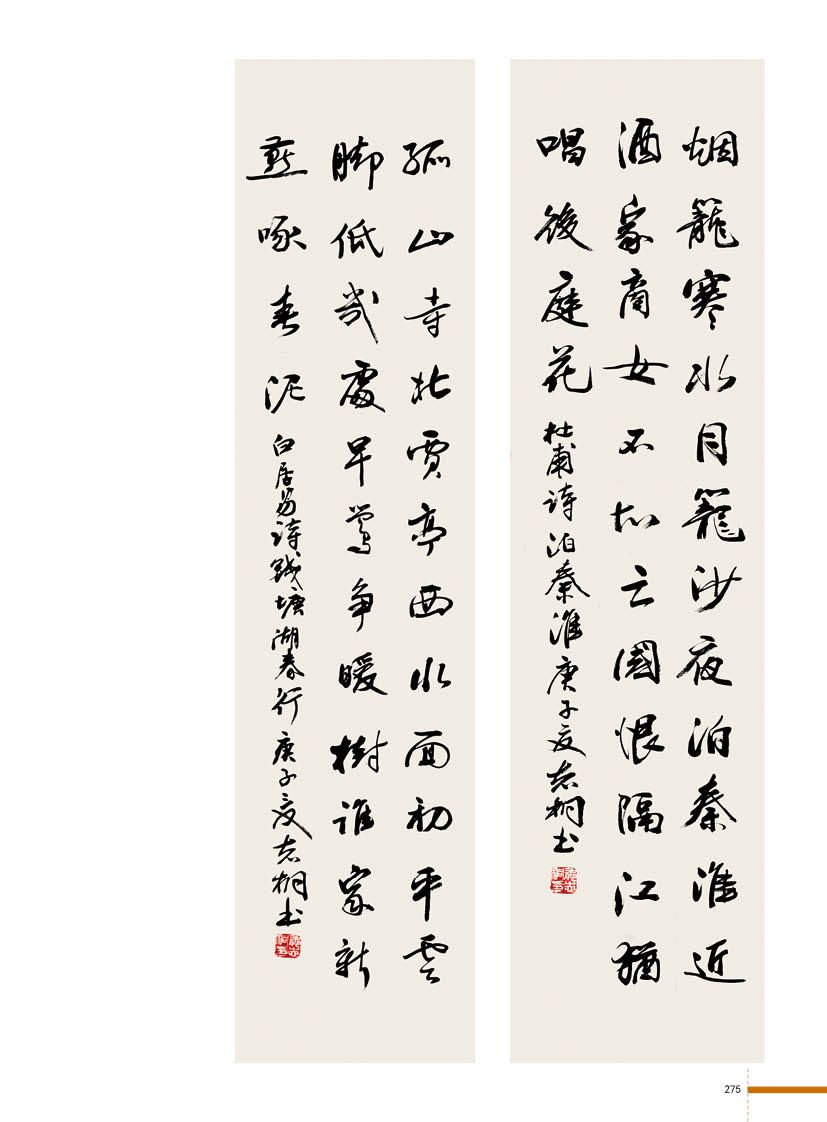 烟籠寒水月籠沙夜泊秦淮近
酒家商女不知亡國恨隔江猶
唱後庭花
杜甫诗泊秦淮庚子夏志桐书
孤山寺北賈亭西水面初平雲
脚低幾處早鶯争暖樹谁家新
燕啄春泥
白居易诗钱塘湖春行庚子夏志桐书
275